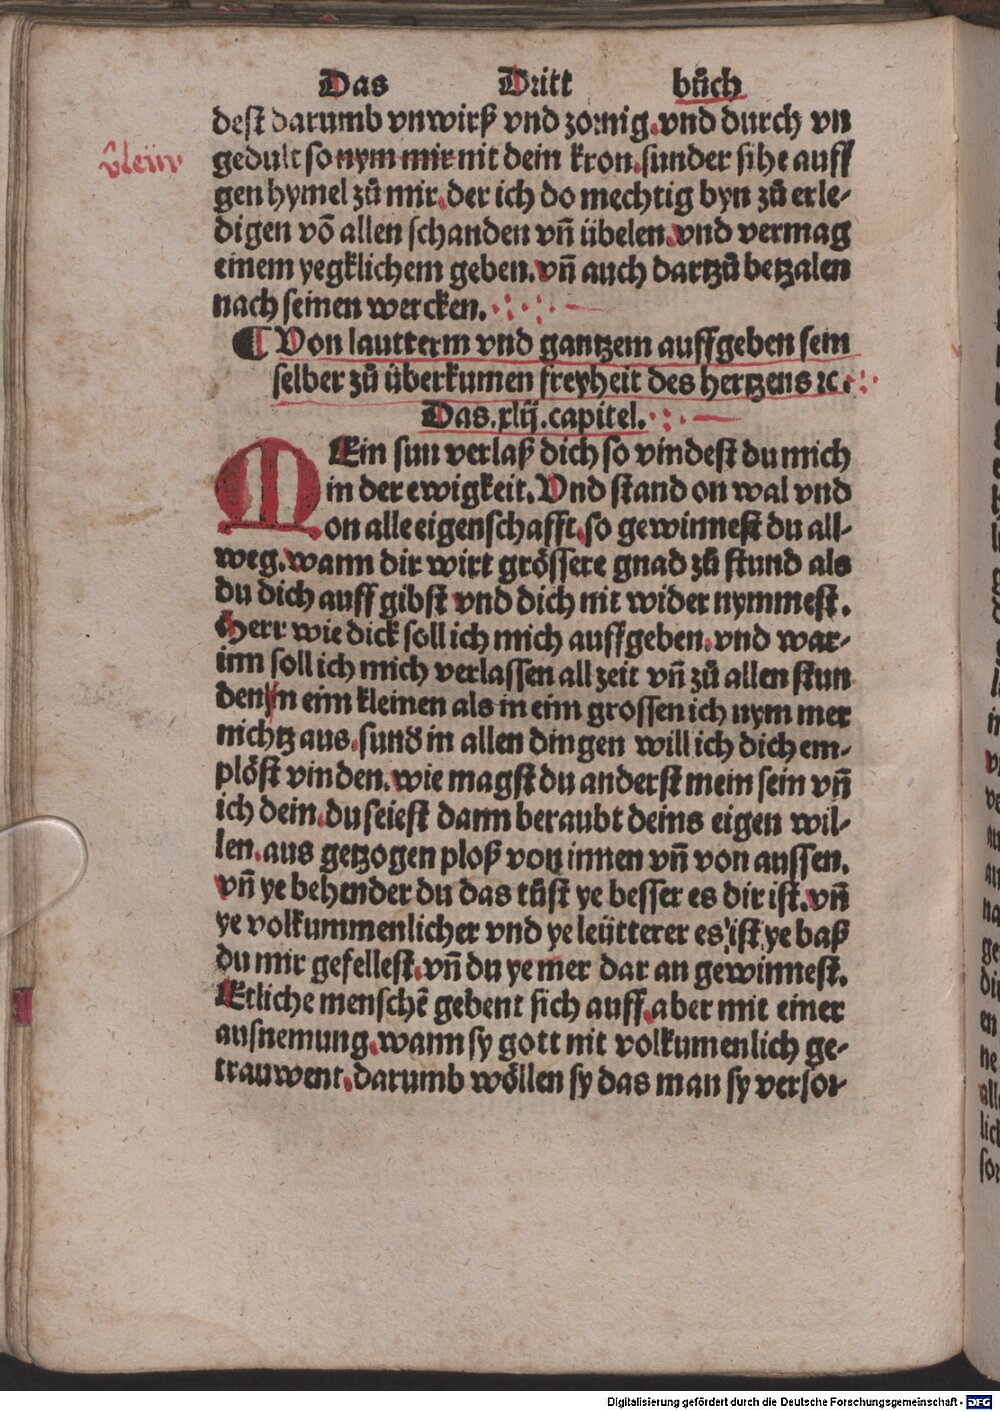 Das Dritt bůch
dest darumb vnwirß vnd zornig. vnd durch vn
gedult so nym mir nit dein kron. sunder sihe auff
gen hymel zů mir. der ich do mechtig byn zů erle-
digen võ allen schanden vñ übelen. vnd vermag
einem yegklichem geben. vñ auch dartzů betzalen
nach seinen wercken.
¶ Von lautterm vnd gantzem auffgeben sein
selber zů überkumen freyheit des hertzens ꝛc.
Das .xlij. capitel.
MEin sun verlaß dich so vindest du mich
in der ewigkeit. Vnd stand on wal vnd
on alle eigenschafft. so gewinnest du all-
weg. wann dir wirt grössere gnad zů stund als
du dich auff gibst vnd dich nit wider nymmest.
Herr wie dick soll ich mich auffgeben. vnd war-
inn soll ich mich verlassen all zeit vñ zů allen stun
den. In eim kleinen als in eim grossen ich nym mer
nichtz aus. sund̄ in allen dingen will ich dich em-
plöst vinden. wie magst du anderst mein sein vñ
ich dein. du seiest dann beraubt deins eigen wil-
len. aus getzogen ploß von innen vñ von aussen.
vñ ye behender du das tůst ye besser es dir ist. vñ
ye volkummenlicher vnd ye leütterer es ist ye baß
du mir gefellest. vñ du ye mer dar an gewinnest.
Etliche menschē gebent sich auff. aber mit einer
ausnemung. wann sy gott nit volkumenlich ge-
trauwent. darumb wöllen sy das man sy versor
Digitalisierung gefördert durch die Deutsche Forschungsgemeinschaft - DFG